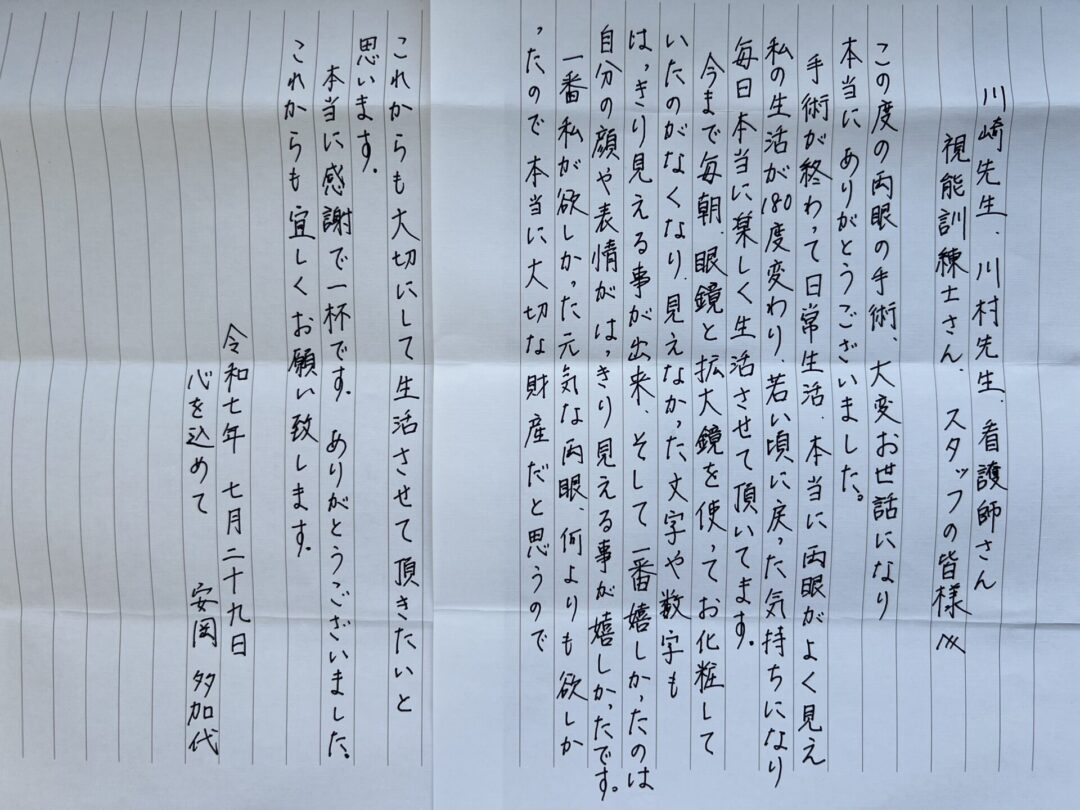 川崎先生、川村先生、看護師さん
視能訓練士さん、スタッフの皆様へ
この度の両眼の手術、大変お世話になり
本当にありがとうございました。
手術が終わって日常生活、本当に両眼がよく見え
私の生活が180度変わり、若い頃に戻った気持ちになり
毎日本当に楽しく生活させて頂いてます。
今まで毎朝、眼鏡と拡大鏡を使ってお化粧して
いたのがなくなり、見えなかった文字や数字も
はっきり見える事が出来、そして一番嬉しかったのは
自分の顔や表情がはっきり見える事が嬉しかったです。
一番私が欲しかった元気な両眼、何よりも欲しか
ったので本当に大切な財産だと思うので
これからも大切にして生活させて頂きたいと
思います。
本当に感謝で一杯です。ありがとうございました。
これからも宜しくお願い致します。
令和七年 七月二十九日
心を込めて 安岡 多加代